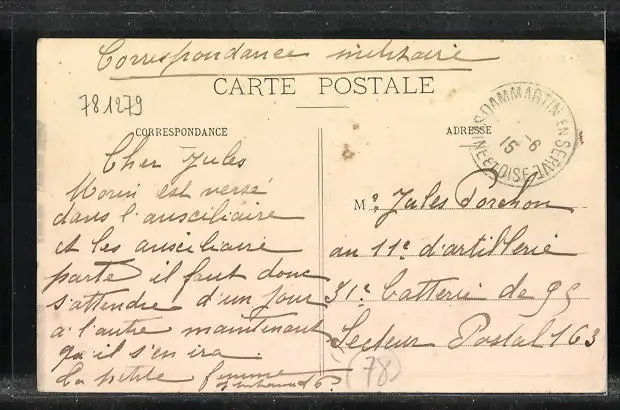 Correspondance militaire
CARTE POSTALE
781279
CORRESPONDANCE
ADRESSE
DAMMARTIN EN SERVE
SEINE ET OISE
15 -6
Cher Jules
Morin est versé
dans l'ausciliaire
et les ausciliaire
parte il faut donc
s'attendre d'un jour
a l'autre maintenant
qu'il s'en ira
La petite femme
Mr Jules Porchon
au 11e d'artillerie
31e batterie de 95
Secteur Postal 163
(78)